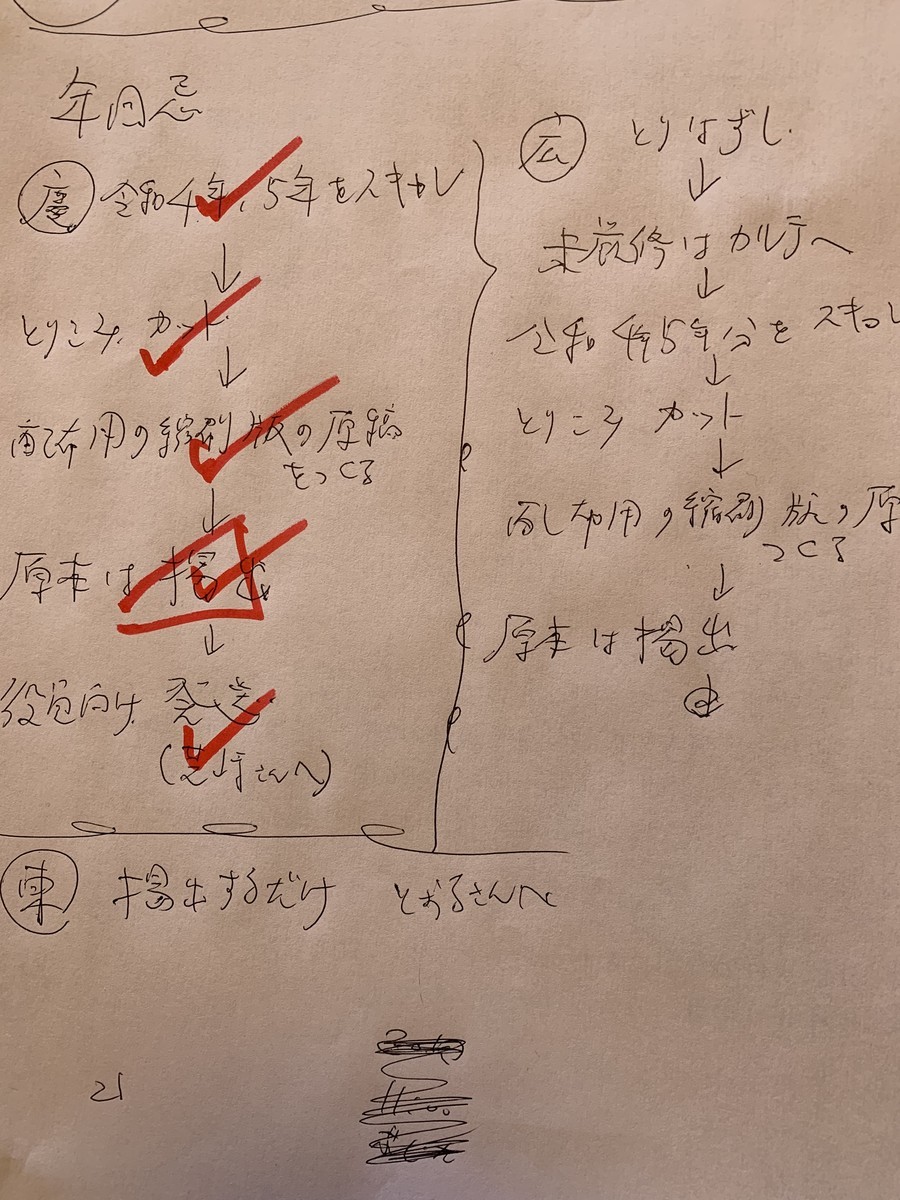 年回忌
慶 令和4年、5年をスキャし
↓
とりこみ、カット
↓
配布用の縮刷版の原稿
をつくる
↓
原本は掲出
↓
役員向け 発送
(芝崎さんへ)
広 とりはずし
↓
未厳修はカルテへ
↓
令和4年5年分をスキャし
↓
とりこみ カット
↓
配布用の縮刷版の原
つくる
↓
原本は掲出
東 掲出するだけ とおるさんへ
21